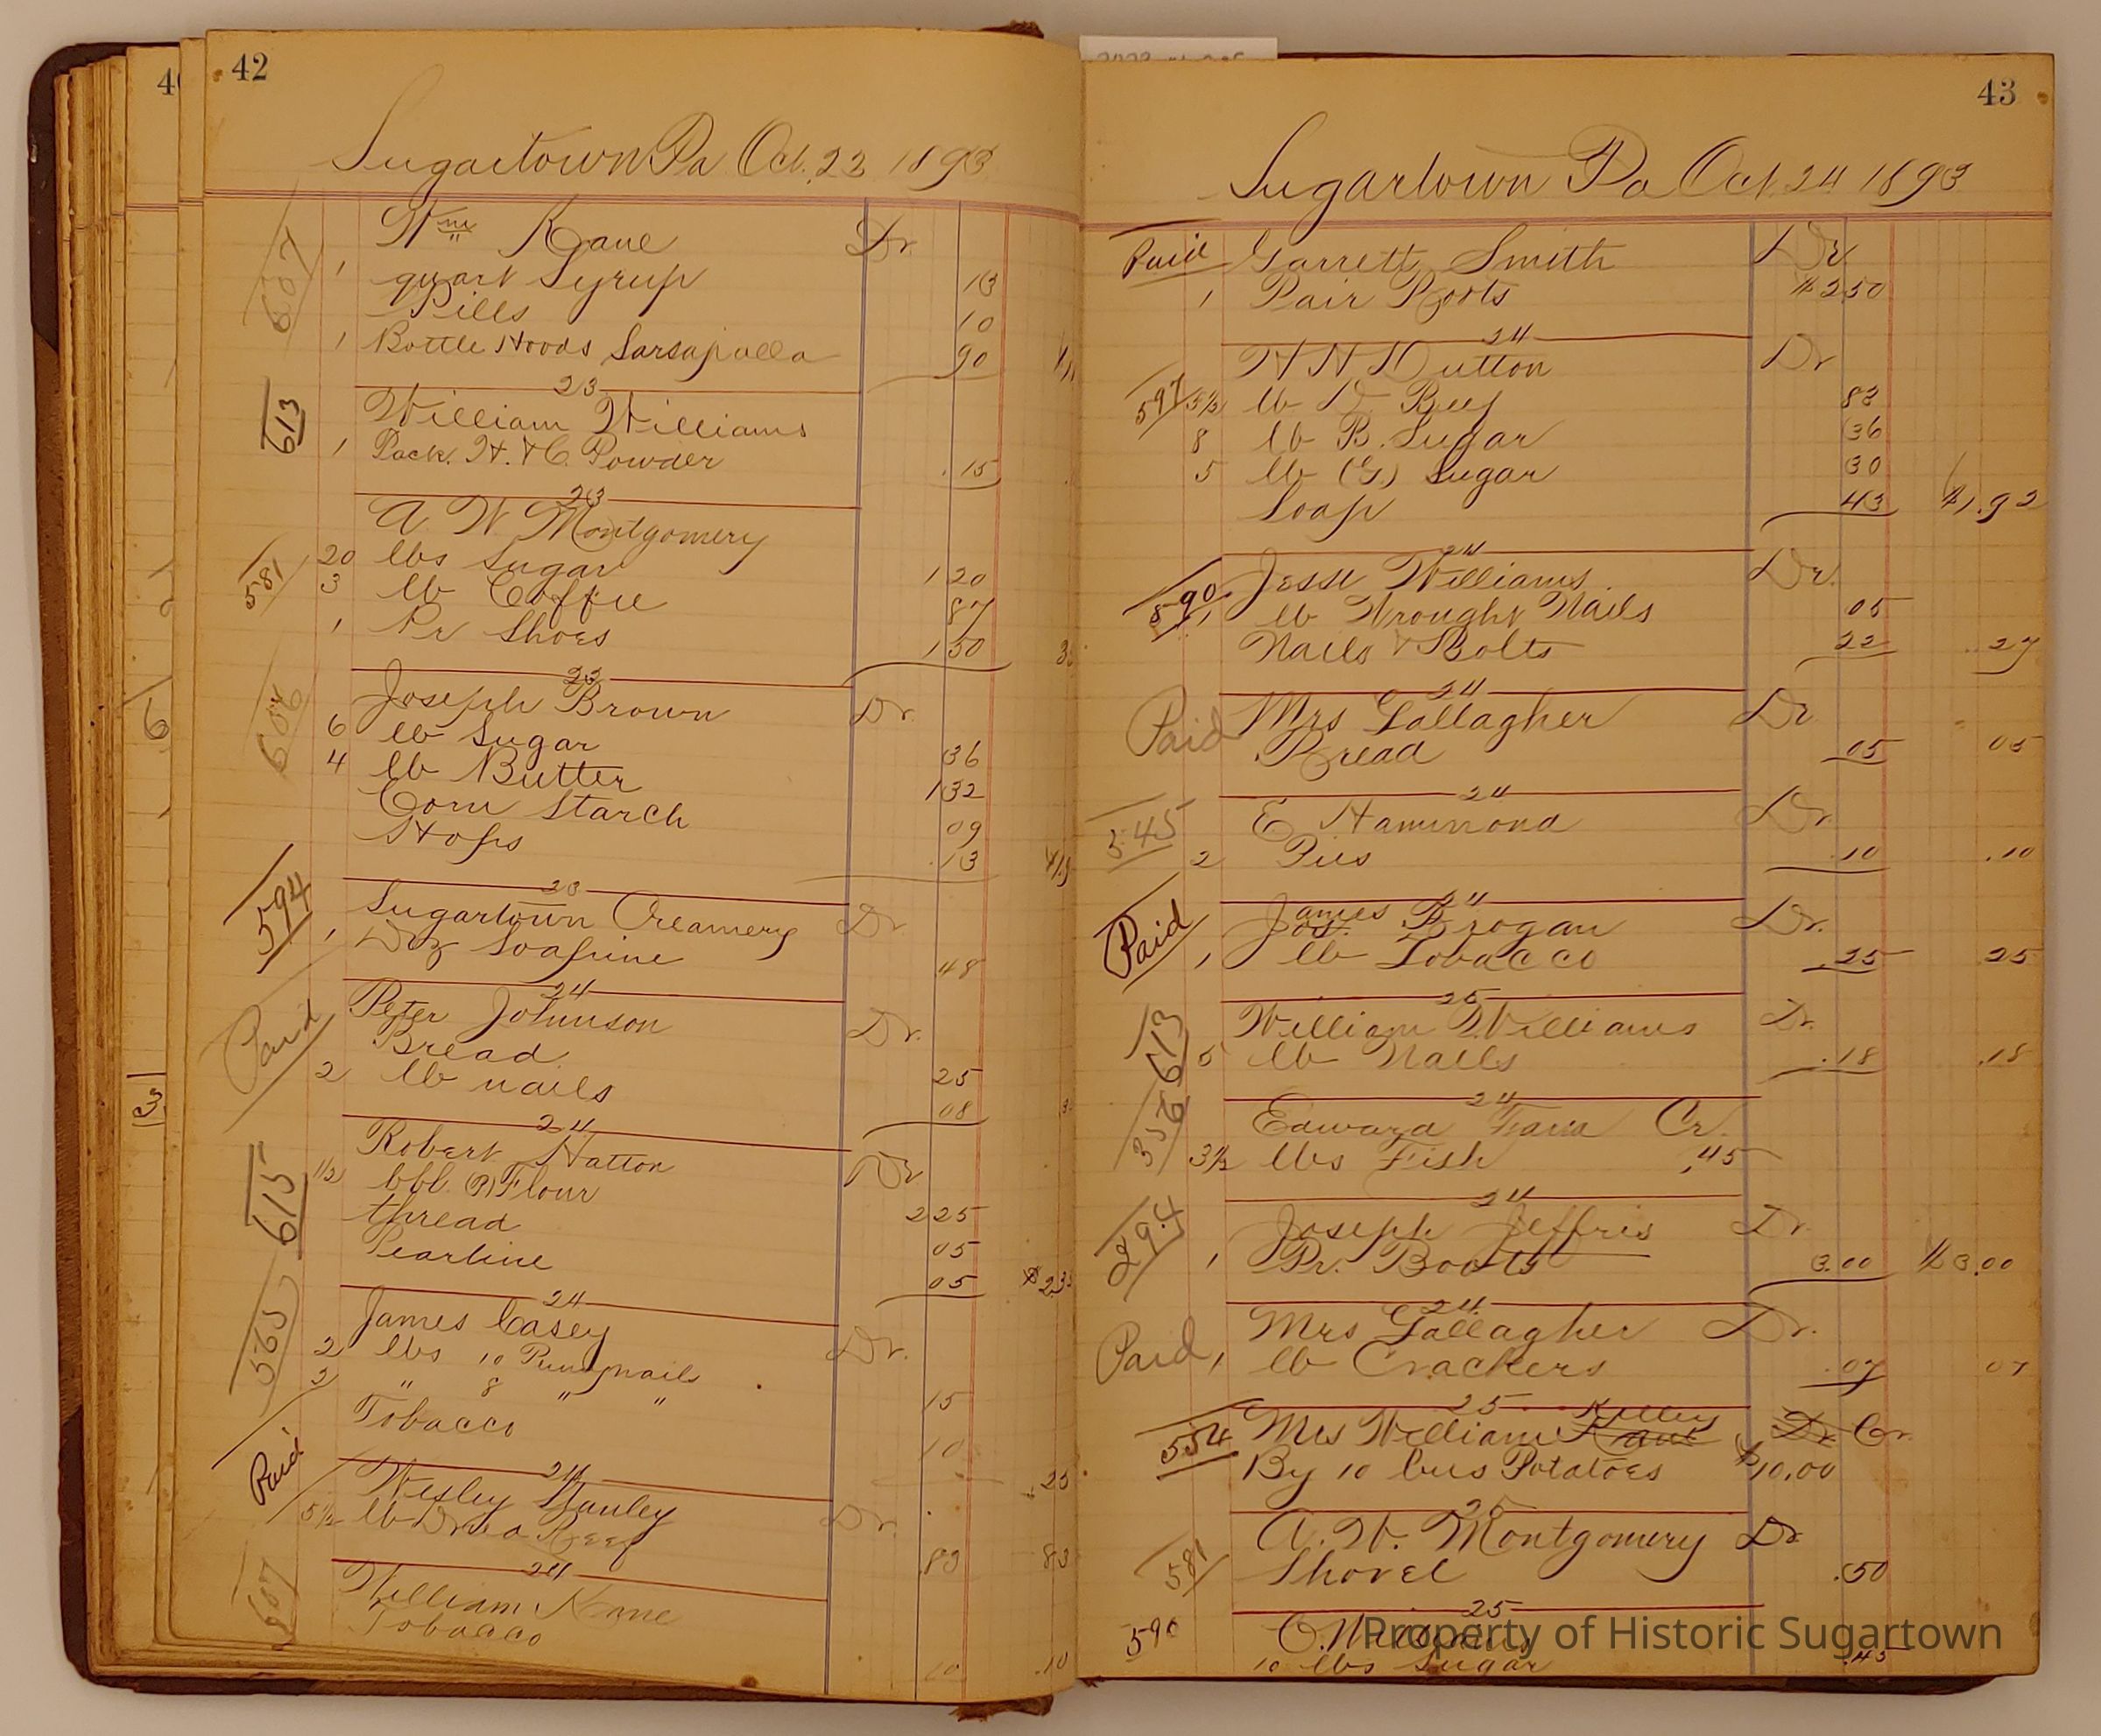 42
Sugartown Pa Oct. 23 1893
607 Wm Kane Dr.
1 quart Syrup 13
Pills 10
1 Bottle Hoods Sarsapailla 90
23
613 William Williams
1 Pack. H. & C. Powder .15
23
A W Montgomery
581 20 lbs Sugar 1 20
3 lb Coffee 87
1 Pr Shoes 1 50
23
606 Joseph Brown Dr.
6 lb Sugar 36
4 lb Butter 1 32
Corn Starch 09
Hops .13
23
594 Sugartown Creamery Dr
1 Doz Soapine 48
24
Paid Peter Johnson Dr.
Bread 25
2 lb nails 08
24
615 Robert Hatton Dr
1/2 bbl (P) Flour 2 25
thread 05
Pearline 05 $2.3
24
565 James Casey Dr.
2 lbs 10 Penny nails
3 " 8 " " 15
Tobacco 10 .25
24
Paid Wesley Wanley Dr.
5 1/2 lb Dried Beef .83 83
24
607 William Kane
Tobacco 10 .10
43
Sugartown Pa Oct. 24 1893
Paid Garrett Smith Dr
1 Pair Boots $2 50
24
H H Dutton Dr
597 5 1/2 lb D. Beef 83
8 lb B. Sugar 36
5 lb (G.) Sugar 30
Soap 43 $1.92
24
590 Jesse Williams. Dr.
1 lb Wrought Nails 05
Nails & Bolts 22 .27
24
Paid Mrs Gallagher Dr
Bread 05 05
24
545 E Hammond Dr.
2 Pies .10 .10
24
Paid James Jos. Brogan Dr.
1 lb Tobacco .25 25
25
613 William Williams Dr.
5 lb Nails .18 .18
24
356 Edward Faria Cr.
3 1/2 lbs Fish .45
24
294 Joseph Jeffris Dr.
1 Pr. Boots 3.00 $3.00
24
Paid Mrs Gallagher Dr.
1 lb Crackers .07 07
25
554 Mrs William Kane Kelley Dr Cr.
By 10 bus Potatoes $10.00
25
A. W. Montgomery Dr
581 Shovel .50
25
590 C. Williams
10 lbs Sugar .45
Property of Historic Sugartown